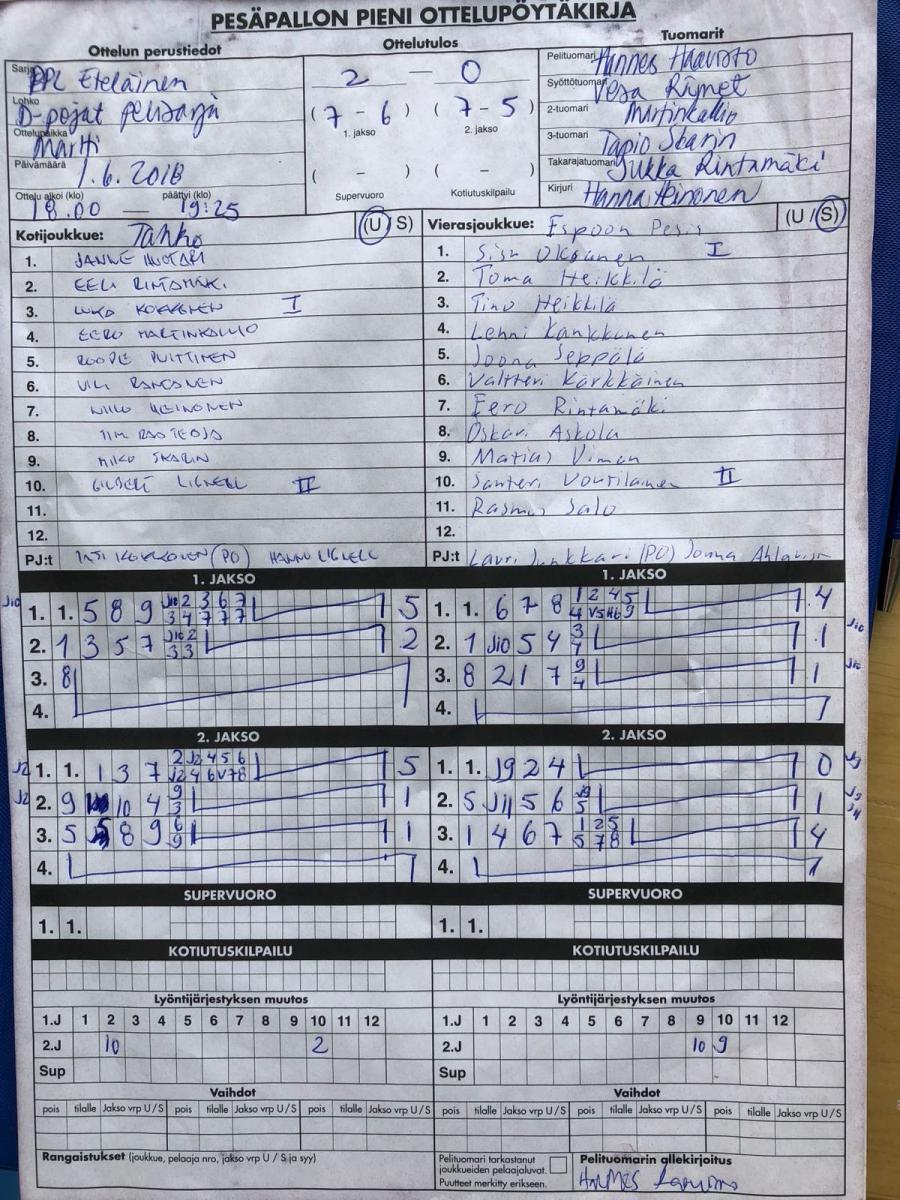 PESÄPALLON PIENI OTTELUPÖYTÄKIRJA
Ottelun perustiedot
Ottelutulos
Tuomarit
Sarja PPL Eteläinen
Lohko D-pojat pelisarja
Ottelupaikka Martti
Päivämäärä 1.6.2018
Ottelu alkoi (klo) päättyi (klo)
18.00 — 19:25
2 — 0
(7 - 6) (7 - 5)
1. jakso 2. jakso
( - ) ( - )
Supervuoro Kotiutuskilpailu
Pelituomari Hannes Haavisto
Syöttötuomari Vesa Rymet
2-tuomari Martinkallio
3-tuomari Tapio Skarin
Takarajatuomari Jukka Rintamäki
Kirjuri Hanna Heinonen
Kotijoukkue: Tahko (U S)
1. JANNE HUOTARI
2. EELI RINTAMÄKI
3. KOKKONEN I
4. EERO MARTINKALLIO
5. ROOPE PUITTINEN
6. VILI RANTANEN
7. NIILO HEINONEN
8.
9. MIKO SKARIN
10. GILBERT LIGNELL II
11.
12.
PJ:t KOKKONEN (PO) HANNU LIGNELL
Vierasjoukkue: Espoon Pesis (U / S)
1. Sisu Oksanen I
2. Toma Heikkilä
3. Tino Heikkilä
4. Lenni Kankkunen
5. Joona Seppälä
6. Valtteri Kärkkäinen
7. Eero Rintamäki
8. Oskari Askola
9. Matias Viman
10. Santeri Voutilainen II
11. Rasmus Salo
12.
PJ:t Lauri Junkkari (PO) Jonna Ahlqvist
1. JAKSO
J10 1. 1. 5 8 9 J10 2 3 6 7 5
3 4 7 7 7
2. 1 3 5 7 J10 2 2
3 3
3. 8
4.
1. JAKSO
1. 1. 6 7 8 1 2 4 5 4
4 V5 H6 9
2. 1 J10 5 4 3 1 J10
4
3. 8 2 1 7 9 1 J10
4
4.
2. JAKSO
J2 1. 1. 1 3 7 2 J2 4 5 6 5
J2 4 6 V7 8
J2 2. 9 10 4 9 1
3
3. 5 8 9 6 1
9
4.
2. JAKSO
1. 1. J9 2 4 0 J9
2. 5 J11 5 6 J9 1 J9
5 J11
3. 1 4 6 7 1 2 5 4
5 7 8
4.
SUPERVUORO
1. 1.
SUPERVUORO
1. 1.
KOTIUTUSKILPAILU
KOTIUTUSKILPAILU
Lyöntijärjestyksen muutos
1.J 1 2 3 4 5 6 7 8 9 10 11 12
2.J 10 2
Sup
Lyöntijärjestyksen muutos
1.J 1 2 3 4 5 6 7 8 9 10 11 12
2.J 10 9
Sup
Vaihdot
pois tilalle Jakso vrp U/S pois tilalle Jakso vrp U/S pois tilalle Jakso vrp U/S
Vaihdot
pois tilalle Jakso vrp U/S pois tilalle Jakso vrp U/S pois tilalle Jakso vrp U/S
Rangaistukset (joukkue, pelaaja nro, jakso vrp U / S ja syy)
Pelituomari tarkastanut
joukkueiden pelaajaluvat.
Puutteet merkitty erikseen.
Pelituomarin allekirjoitus
Hannes